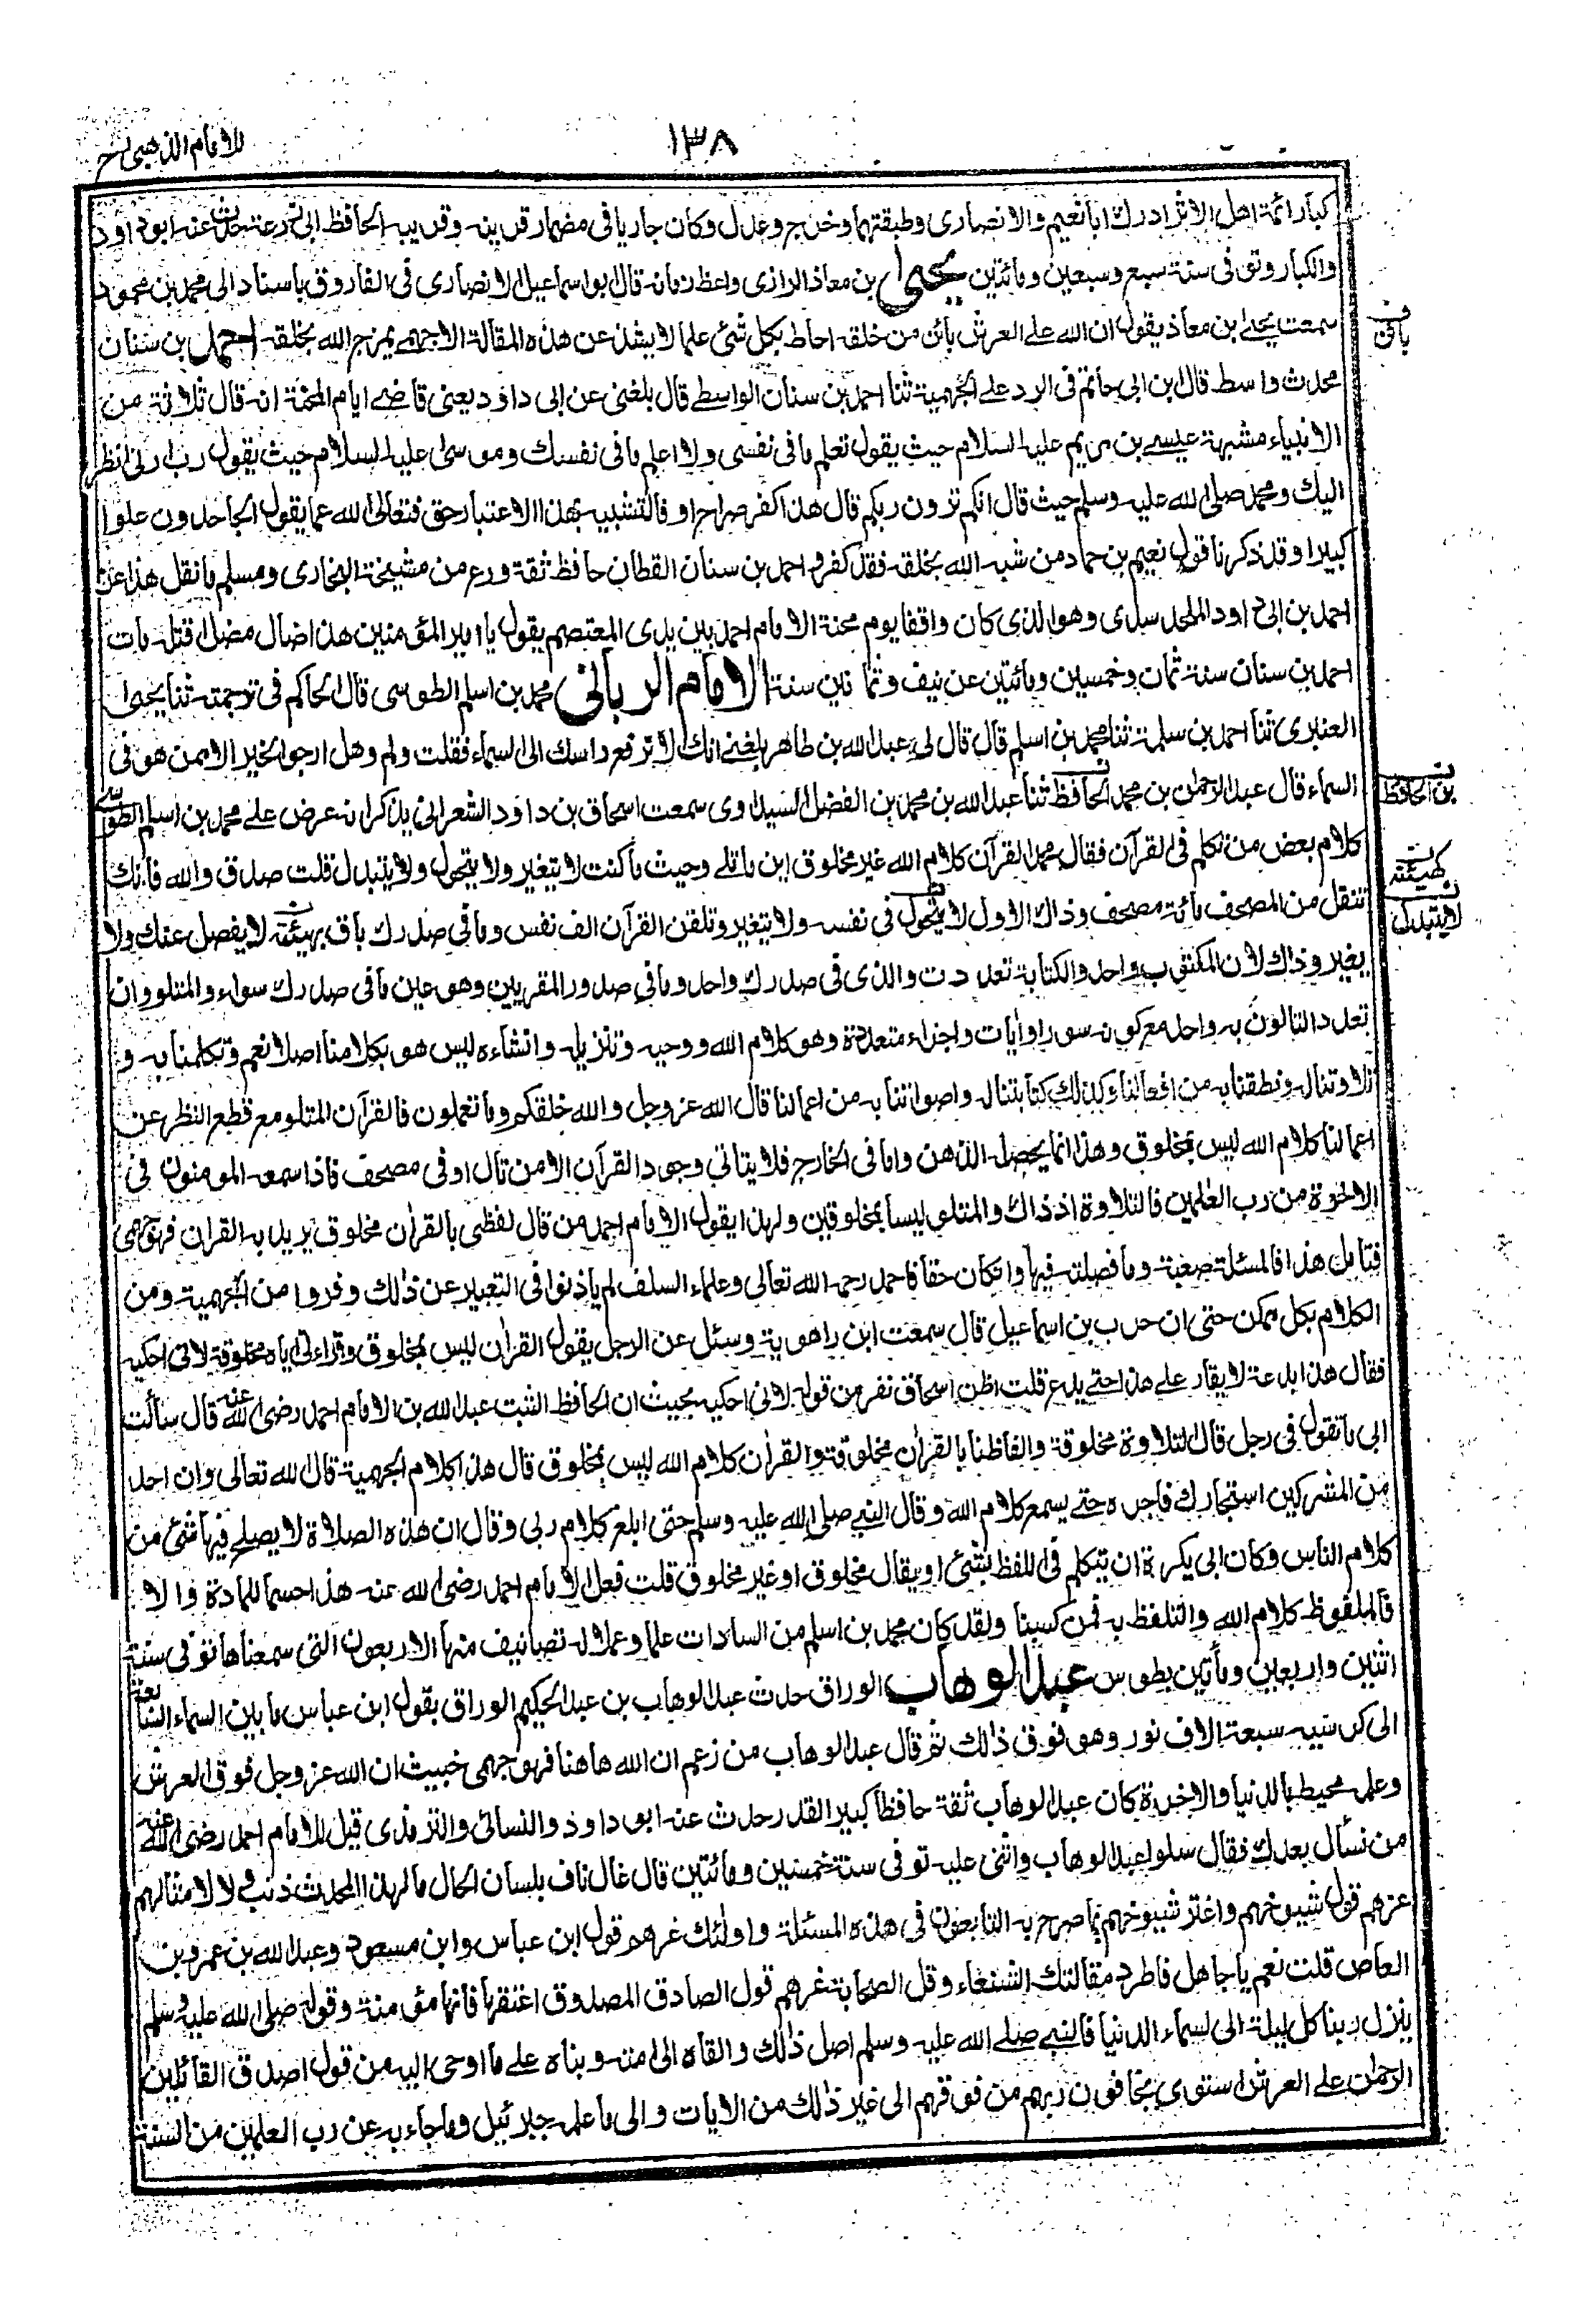 ١٣٨
للامام الذهبي رح
كبار ائمة اهل الاثر ادرك ابا نعيم والانصاري وطبقتهما وخرج وعدل وكان جاريا في مضمار قرينه وقريبه الحافظ ابي زرعة حدث عنه ابوداود
والكبار وتوفي في سنة سبع وسبعين ومائتين يحيى بن معاذ الرازي واعظ زمانه قال ابو اسماعيل الانصاري في الفاروق باسناد الى محمد بن محمود
سمعت يحيى بن معاذ يقول ان الله على العرش بائن من خلقه احاط بكل شئ علما لا يشذ عن هذه المقالة الا جهمي يمزج الله بخلقه احمد بن سنان
بائن
محدث واسط قال ابن ابي حاتم في الرد على الجهمية ثنا احمد بن سنان الواسطي قال بلغني عن ابي داؤد يعني قاضي ايام المحنة انه قال ثلاثة من
الانبياء مشبهة عيسى بن مريم عليه السلام حيث يقول تعلم ما في نفسي ولا اعلم ما في نفسك وموسى عليه السلام حيث يقول رب ارني انظر
اليك ومحمد صلى الله عليه وسلم حيث قال انكم ترون ربكم قال هذا كفر صراح او فالتشبيه بهذا الاعتبار حق فتعالى الله عما يقول الجاحدون علوا
كبيرا وقد ذكرنا قول نعيم بن حماد من شبه الله بخلقه فقد كفر و احمد بن سنان القطان حافظ ثقة ورع من مشيخة البخاري ومسلم ما نقل هذا عن
احمد بن ابي داود الملحد سدى وهو الذي كان واقفا يوم محنة الامام احمد بين يدي المعتصم يقول يا امير المؤمنين هذا ضال مضل اقتله مات
احمد بن سنان سنة ثمان وخمسين ومائتين عن نيف وثمانين سنة الامام الرباني محمد بن اسلم الطوسي قال الحاكم في ترجمته ثنا يحيى
العنبري ثنا احمد بن سلمة ثنا محمد بن اسلم قال قال لي عبد الله بن طاهر بلغني انك لا ترفع راسك الى السماء فقلت ولم وهل ارجو الخير الا ممن هو في
السماء قال عبد الرحمن بن محمد الحافظ ثنا عبد الله بن محمد بن الفضل السيداوى سمعت اسحاق بن داود الشعراني يذكر انه عرض على محمد بن اسلم الطوسي
بن الحافظ
كلام بعض من تكلم في القرآن فقال محمد القرآن كلام الله غير مخلوق اين ما تلي وحيث ما كنت لا يتغير ولا يتحول ولا يتبدل قلت صدق والله فانك
كهيئته
تنقل من المصحف مائة مصحف وذاك الاول لا يتحول في نفسه ولا يتغير وتلقن القرآن الف نفس وما في صدرك باق بهيئته لا يفصل عنك ولا
لا يتبدل
يغير وذاك لان المكتوب واحد والكتابة تعددت والذي في صدرك واحد وما في صدور المقريين وهو عين ما في صدرك سواء والمتلو وان
تعدد التالون به واحد مع كونه سورا وآيات واجزاء متعددة وهو كلام الله ووحيه وتنزيله وانشاءه ليس هو بكلامنا اصلا نعم وتكلمنا به و
تلاوتنا له ونطقنا به من افعالنا وكذلك كتابتنا له واصواتنا به من اعمالنا قال الله عز وجل والله خلقكم وما تعملون فالقرآن المتلو مع قطع النظر عن
اعمالنا كلام الله ليس بمخلوق وهذا انما يحصله الذهن واما في الخارج فلا يتاتى وجود القرآن الا من تال او في مصحف فاذا سمعه المومنون في
الاخرة من رب العلمين فالتلاوة اذ ذاك والمتلو ليسا بمخلوقين ولهذا يقول الامام احمد من قال لفظي بالقرآن مخلوق يريد به القران فهو جهمي
فتامل هذا فالمسئلة صعبة وما فصلته فيها وان كان حقا فاحمد رحمه الله تعالى وعلماء السلف لم ياذنوا في التعبير عن ذلك وفروا من الجهمية ومن
الكلام بكل ممكن حتى ان حرب بن اسماعيل قال سمعت ابن راهوية وسئل عن الرجل يقول القران ليس بمخلوق وقراءتي اياه مخلوقة لاني احكيه
فقال هذا بدعة لا يقار على هذا حتى يدع قلت اظن اسحاق نفر من قوله لاني احكيه بحيث ان الحافظ الثبت عبد الله بن الامام احمد رضى الله عنه قال سألت
ابي ما تقول في رجل قال التلاوة مخلوقة والفاظنا بالقران مخلوقة والقران كلام الله ليس بمخلوق قال هذا كلام الجهمية قال الله تعالى وان احد
من المشركين استجارك فاجره حتى يسمع كلام الله وقال النبي صلى الله عليه وسلم حتى ابلغ كلام ربي وقال ان هذه الصلاة لا يصلح فيها شئ من
كلام الناس وكان ابي يكره ان يتكلم في اللفظ بشئ او يقال مخلوق او غير مخلوق قلت فعل الامام احمد رضى الله عنه هذا حسما للمادة والا
فالملفوظ كلام الله والتلفظ به فمن كسبنا ولقد كان محمد بن اسلم من السادات علما وعملا له تصانيف منها الاربعون التي سمعناها توفي سنة
اثنين واربعين ومأتين بطوس عبد الوهاب الوراق حدث عبد الوهاب بن عبد الحكيم الوراق بقول ابن عباس ما بين السماء السابعة
الى كرسيه سبعة الاف نور وهو فوق ذلك ثم قال عبد الوهاب من زعم ان الله هاهنا فهو جهمي خبيث ان الله عز وجل فوق العرش
وعلمه محيط بالدنيا والاخرة كان عبد الوهاب ثقة حافظا كبير القدر حدث عنه ابو داود والنسائي والترمذي قيل للامام احمد رضى الله عنه
من نسأل بعدك فقال سلوا عبد الوهاب واثنى عليه توفي سنة خمسين ومائتين قال غال ناف بلسان الحال ما لهذا المحدث ذنب ولا لامثالهم
غرهم قول شيوخهم واغتر شيوخهم بما صرح به التابعون في هذه المسئلة واولئك غرهم قول ابن عباس وابن مسعود وعبد الله بن عمرو بن
العاص قلت نعم يا جاهل فاطرد مقالتك الشنعاء وقل الصحابة غرهم قول الصادق المصدوق اعتقها فانها مؤمنة وقوله صلى الله عليه وسلم
ينزل ربنا كل ليلة الى سماء الدنيا فالنبي صلى الله عليه وسلم اصل ذلك والقاه الى امته وبناه على ما اوحي اليه من قول اصدق القائلين
الرحمن على العرش استوى يخافون ربهم من فوقهم الى غير ذلك من الايات والى ما علمه جبرئيل وما جاء به عن رب العلمين من السنة